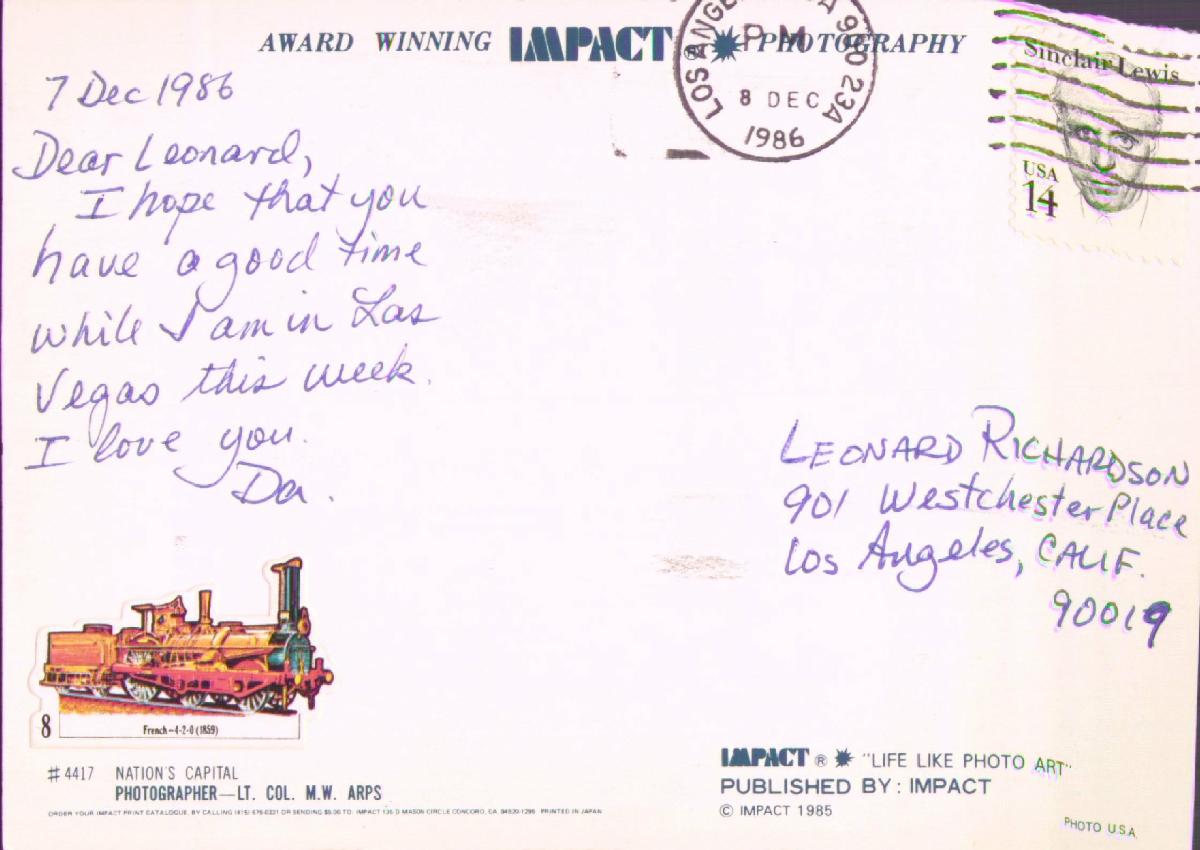 AWARD WINNING IMPACT® PHOTOGRAPHY
LOS ANGE A 900 23A
PM
8 DEC
1986
Sinclair Lewis
USA
14
7 Dec 1986
Dear Leonard,
I hope that you
have a good time
while I am in Las
Vegas this week.
I love you.
Da.
LEONARD RICHARDSON
901 Westchester Place
Los Angeles, CALIF.
90019
8
French-4-2-0 (1859)
#4417 NATION'S CAPITAL
PHOTOGRAPHER—LT. COL. M.W. ARPS
ORDER YOUR IMPACT PRINT CATALOGUE, BY CALLING (415) OR SENDING $5.00 TO: IMPACT 135 D MASON CIRCLE CONCORD, CA. PRINTED IN JAPAN
IMPACT® "LIFE LIKE PHOTO ART"
PUBLISHED BY: IMPACT
© IMPACT 1985
PHOTO U.S.A.